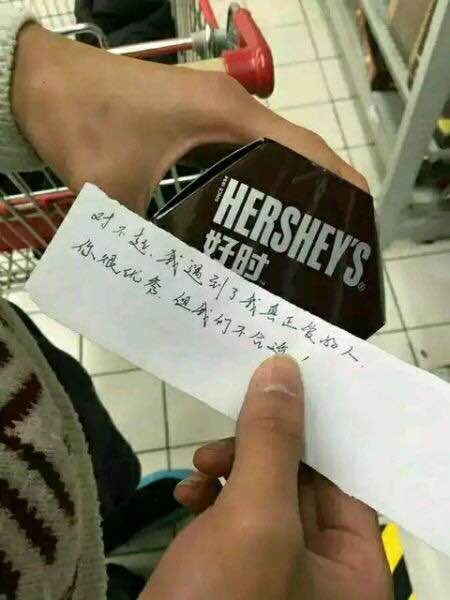 SINCE 1894
HERSHEY'S®
好时
对不起,我遇到了我真正爱的人.
你很优秀.但我们不合适,